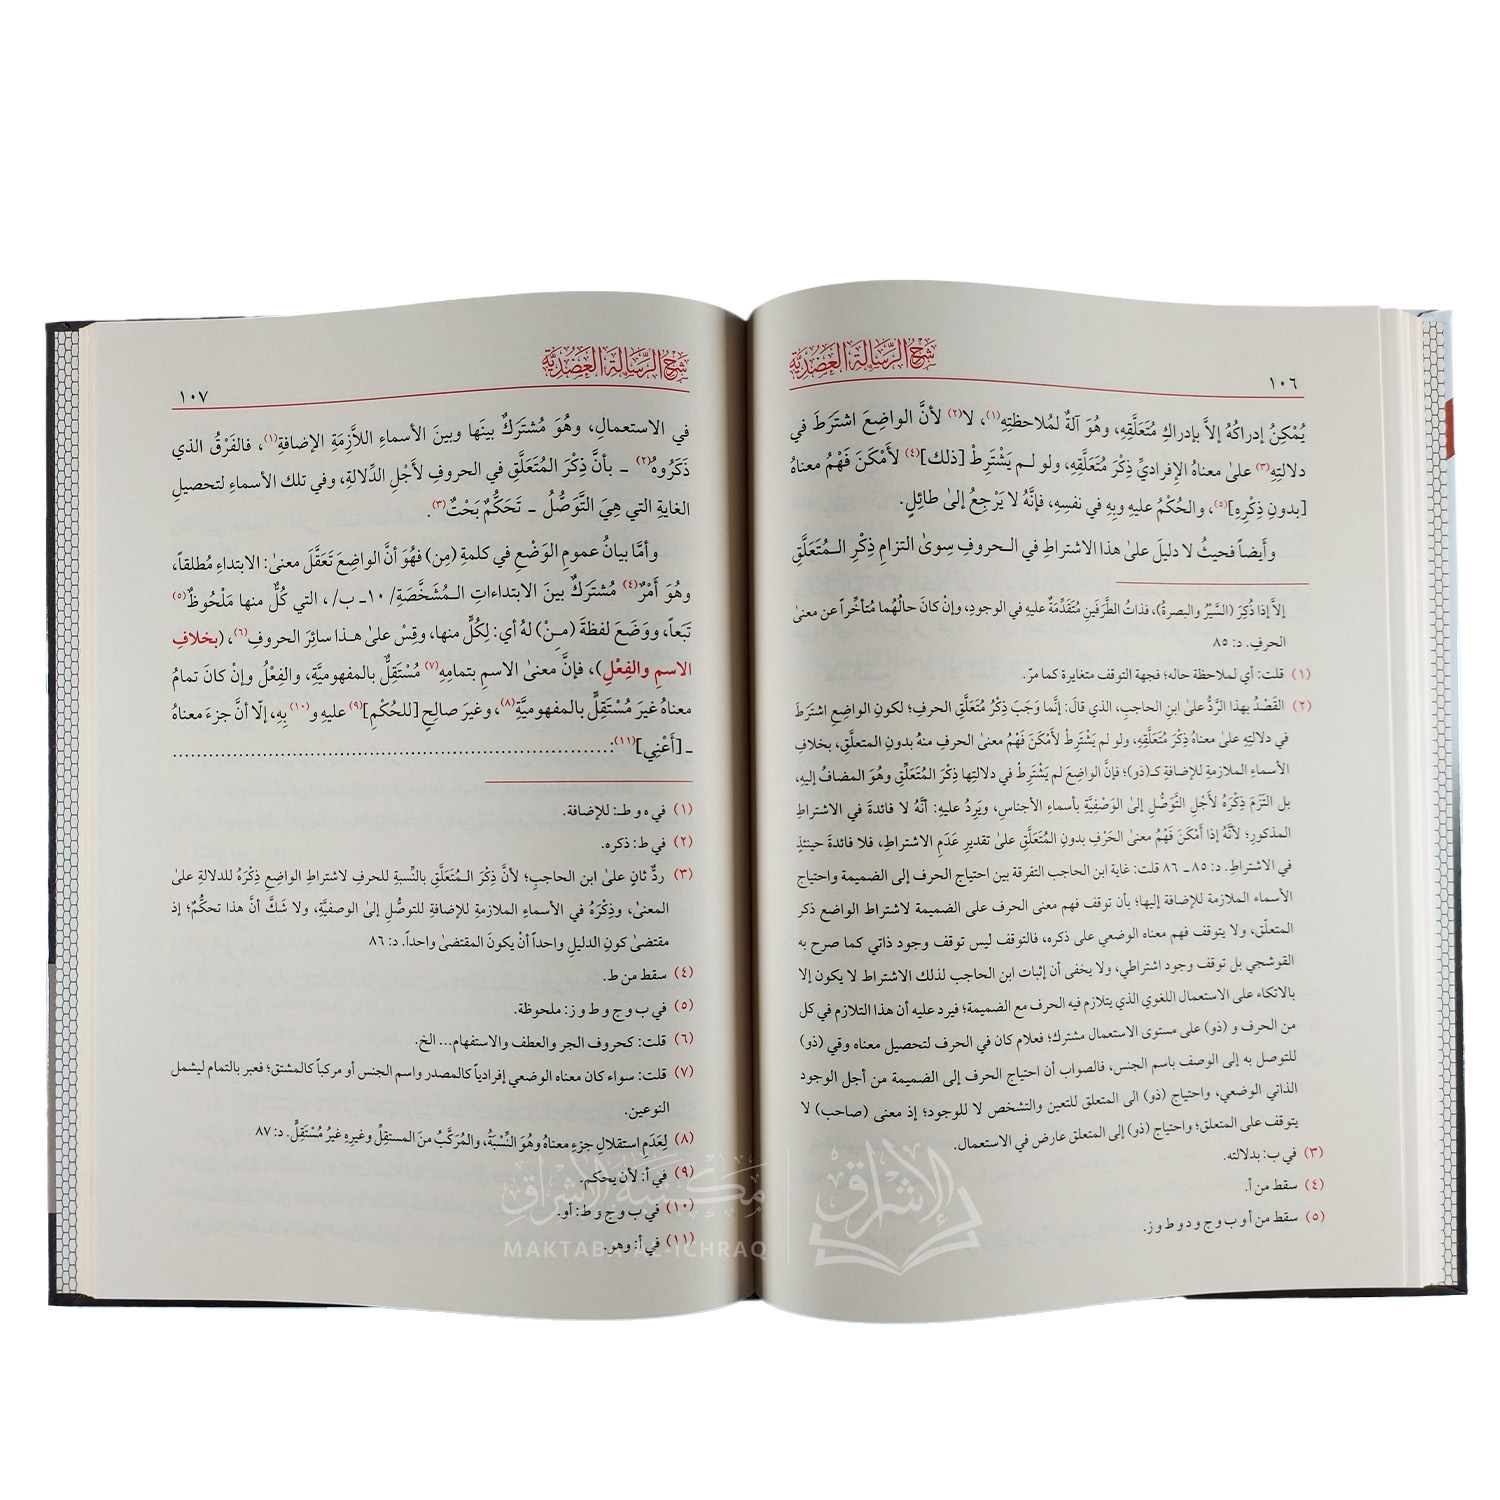 شرح الرسالة العضدية
١٠٦
يُمْكِنُ إدراكُهُ إلاَّ بإدراكِ مُتَعَلَّقِهِ، وهُوَ آلةٌ لمُلاحظتِهِ(١)، لا(٢) لأنَّ الواضِعَ اشترَطَ في
دلالتِهِ(٣) علىٰ معناهُ الإفراديِّ ذِكْرَ مُتَعَلَّقِهِ، ولو لم يَشْتَرِطْ [ذلك](٤) لأَمْكَنَ فَهْمُ معناهُ
[بدونِ ذِكْرِهِ](٥)، والحُكْمُ عليهِ وبِهِ في نفسِهِ، فإنَّهُ لا يَرْجِعُ إلىٰ طائِلٍ.
وأَيضاً فحيثُ لا دليلَ علىٰ هذا الاشتراطِ في الحروفِ سِوىٰ التزامِ ذِكْرِ المُتَعَلَّقِ
إلاَّ إذا ذُكِرَ (السَّيْرُ والبصرةُ)، فذاتُ الطَّرَفَينِ مُتَقَدِّمَةٌ عليهِ في الوجودِ، وإنْ كانَ حالُهُما مُتأخِّراً عن معنىٰ
الحرفِ. د: ٨٥
(١) قلت: أي لملاحظة حاله؛ فجهة التوقف متغايرة كما مرّ.
(٢) القَصْدُ بهذا الرَّدُّ علىٰ ابنِ الحاجبِ، الذي قالَ: إنَّما وَجَبَ ذِكْرُ مُتَعَلَّقِ الحرفِ؛ لكونِ الواضِعِ اشتَرَطَ
في دلالتِهِ علىٰ معناهُ ذِكْرَ مُتَعَلَّقِهِ، ولو لم يَشْتَرِطْ لأَمْكَنَ فَهْمُ معنىٰ الحرفِ منهُ بدونِ المتعلَّقِ، بخلافِ
الأسماءِ الملازمةِ للإضافةِ كـ(ذو)؛ فإنَّ الواضِعَ لم يَشْتَرِطْ في دلالتِها ذِكْرَ المُتَعَلِّقِ وهُوَ المضافُ إليهِ،
بل التَزَمَ ذِكْرَهُ لأَجْلِ التَّوَصُّلِ إلىٰ الوَصْفِيَّةِ بأسماءِ الأجناسِ، ويَرِدُ عليهِ: أنَّهُ لا فائدةَ في الاشتراطِ
المذكورِ؛ لأنَّهُ إذا أَمْكَنَ فَهْمُ معنىٰ الحَرْفِ بدونِ المُتَعَلَّقِ علىٰ تقديرِ عَدَمِ الاشتراطِ، فلا فائدةَ حينئذٍ
في الاشتراطِ. د: ٨٥ـ ٨٦ قلت: غاية ابن الحاجب التفرقة بين احتياج الحرف إلى الضميمة واحتياج
الأسماء الملازمة للإضافة إليها؛ بأن توقف فهم معنى الحرف على الضميمة لاشتراط الواضع ذكر
المتعلّق، ولا يتوقف فهم معناه الوضعي على ذكره، فالتوقف ليس توقف وجود ذاتي كما صرح به
القوشجي بل توقف وجود اشتراطي، ولا يخفى أن إثبات ابن الحاجب لذلك الاشتراط لا يكون إلا
بالاتكاء على الاستعمال اللغوي الذي يتلازم فيه الحرف مع الضميمة؛ فيرد عليه أن هذا التلازم في كل
من الحرف و (ذو) على مستوى الاستعمال مشترك؛ فعلام كان في الحرف لتحصيل معناه وفي (ذو)
للتوصل به إلى الوصف باسم الجنس، فالصواب أن احتياج الحرف إلى الضميمة من أجل الوجود
الذاتي الوضعي، واحتياج (ذو) الى المتعلق للتعين والتشخص لا للوجود؛ إذ معنى (صاحب) لا
يتوقف على المتعلق؛ واحتياج (ذو) إلى المتعلق عارض في الاستعمال.
(٣) في ب: بدلالته.
(٤) سقط من أ.
(٥) سقط من أ و ب و ج و د و ط و ز.
شرح الرسالة العضدية
١٠٧
في الاستعمالِ، وهُوَ مُشتركٌ بينَها وبينَ الأسماءِ اللاَّزِمَةِ الإضافةِ(١)، فالفَرْقُ الذي
ذَكَرُوهُ(٢) ـ بأنَّ ذِكْرَ المُتَعَلَّقِ في الحروفِ لأَجْلِ الدِّلالةِ، وفي تلك الأسماءِ لتحصيلِ
الغايةِ التي هِيَ التَّوَصُّلُ ـ تَحَكُّمٌ بَحْتٌ(٣).
وأمَّا بيانُ عمومِ الوَضْعِ في كلمةِ (مِن) فهُوَ أنَّ الواضِعَ تَعَقَّلَ معنىٰ: الابتداءِ مُطلقاً،
وهُوَ أَمْرٌ(٤) مُشتَرَكٌ بينَ الابتداءاتِ المُشَخَّصَةِ/ ١٠ـ ب/، التي كُلٌّ منها مَلْحُوظٌ(٥)
تَبَعاً، ووَضَعَ لفظةَ (مِـنْ) لهُ أي: لِكُلٍّ منها، وقِسْ علىٰ هذا سائِرَ الحروفِ(٦)، (بخلافِ
الاسمِ والفِعْلِ)، فإنَّ معنىٰ الاسمِ بتمامِهِ(٧) مُسْتَقِلٌّ بالمفهوميَّةِ، والفِعْلُ وإنْ كانَ تمامُ
معناهُ غيرَ مُسْتَقِلٍّ بالمفهوميَّةِ(٨)، وغيرَ صالحٍ [للحُكْمِ](٩) عليهِ و(١٠) بِهِ، إلّا أنَّ جزءَ معناهُ
ـ [أَعْنِي](١١):......................................................................
(١) في ه و ط: للإضافة.
(٢) في ط: ذكره.
(٣) ردٌّ ثانٍ علىٰ ابن الحاجبِ؛ لأنَّ ذِكْرَ المُتَعَلَّقِ بالنِّسبةِ للحرفِ لاشتراطِ الواضعِ ذِكرَهُ للدلالةِ علىٰ
المعنىٰ، وذِكْرَهُ في الأسماءِ الملازمةِ للإضافةِ للتوصُّلِ إلىٰ الوصفيَّةِ، ولا شَكَّ أنَّ هذا تحكُّمٌ؛ إذ
مقتضىٰ كونِ الدليلِ واحداً أنْ يكونَ المقتضىٰ واحداً. د: ٨٦
(٤) سقط من ط.
(٥) في ب و ج و ط و ز: ملحوظة.
(٦) قلت: كحروف الجر والعطف والاستفهام... الخ.
(٧) قلت: سواء كان معناه الوضعي إفرادياً كالمصدر واسم الجنس أو مركباً كالمشتق؛ فعبر بالتمام ليشمل
النوعين.
(٨) لِعَدَمِ استقلالِ جزءِ معناهُ وهُوَ النِّسْبَةُ، والمُرَكَّبُ منَ المستقِلِّ وغيرِهِ غيرُ مُسْتَقِلٍّ. د: ٨٧
(٩) في أ: لأن يحكم.
(١٠) في ب و ج و ط: أو.
(١١) في أ: وهو.
مكتبة الإشراق
MAKTABA AL-ICHRAQ
الإشراق